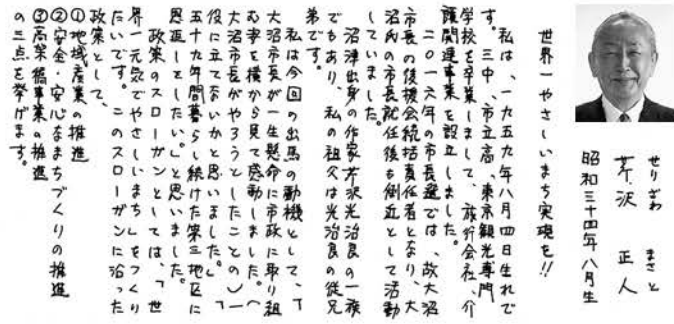 せりざわ　まさと
芹沢　正人
昭和三十四年八月生
世界一やさしいまち実現を!!
私は、一九五九年八月四日生れで
す。三中、市立高、東京観光専門
学校を卒業しまして、旅行会社、介
護関連事業を設立しました。
二〇一六年の市長選では、故大沼
市長の後援会統括責任者となり、大
沼氏の市長就任後も側近として活動
していました。
沼津出身の作家芹沢光治良の一族
でもあり、私の祖父は光治良の従兄
弟です。
私は今回の出馬の動機として、「
大沼市長が一生懸命に市政に取り組
む事を横から見て感動しました。(
大沼市長がやろうとしたことの)一
役に立てないかと思いました。」「
五十九年間暮らし続けた第三地区に
恩返しとしたい。」と思いました。
政策のスローガンとしては、「世
界一元気でやさしいまち」をつくり
たいです。このスローガンに沿った
政策として、
①地域産業の推進
②安全・安心なまちづくりの推進
③高架橋事業の推進
の三点を挙げます。